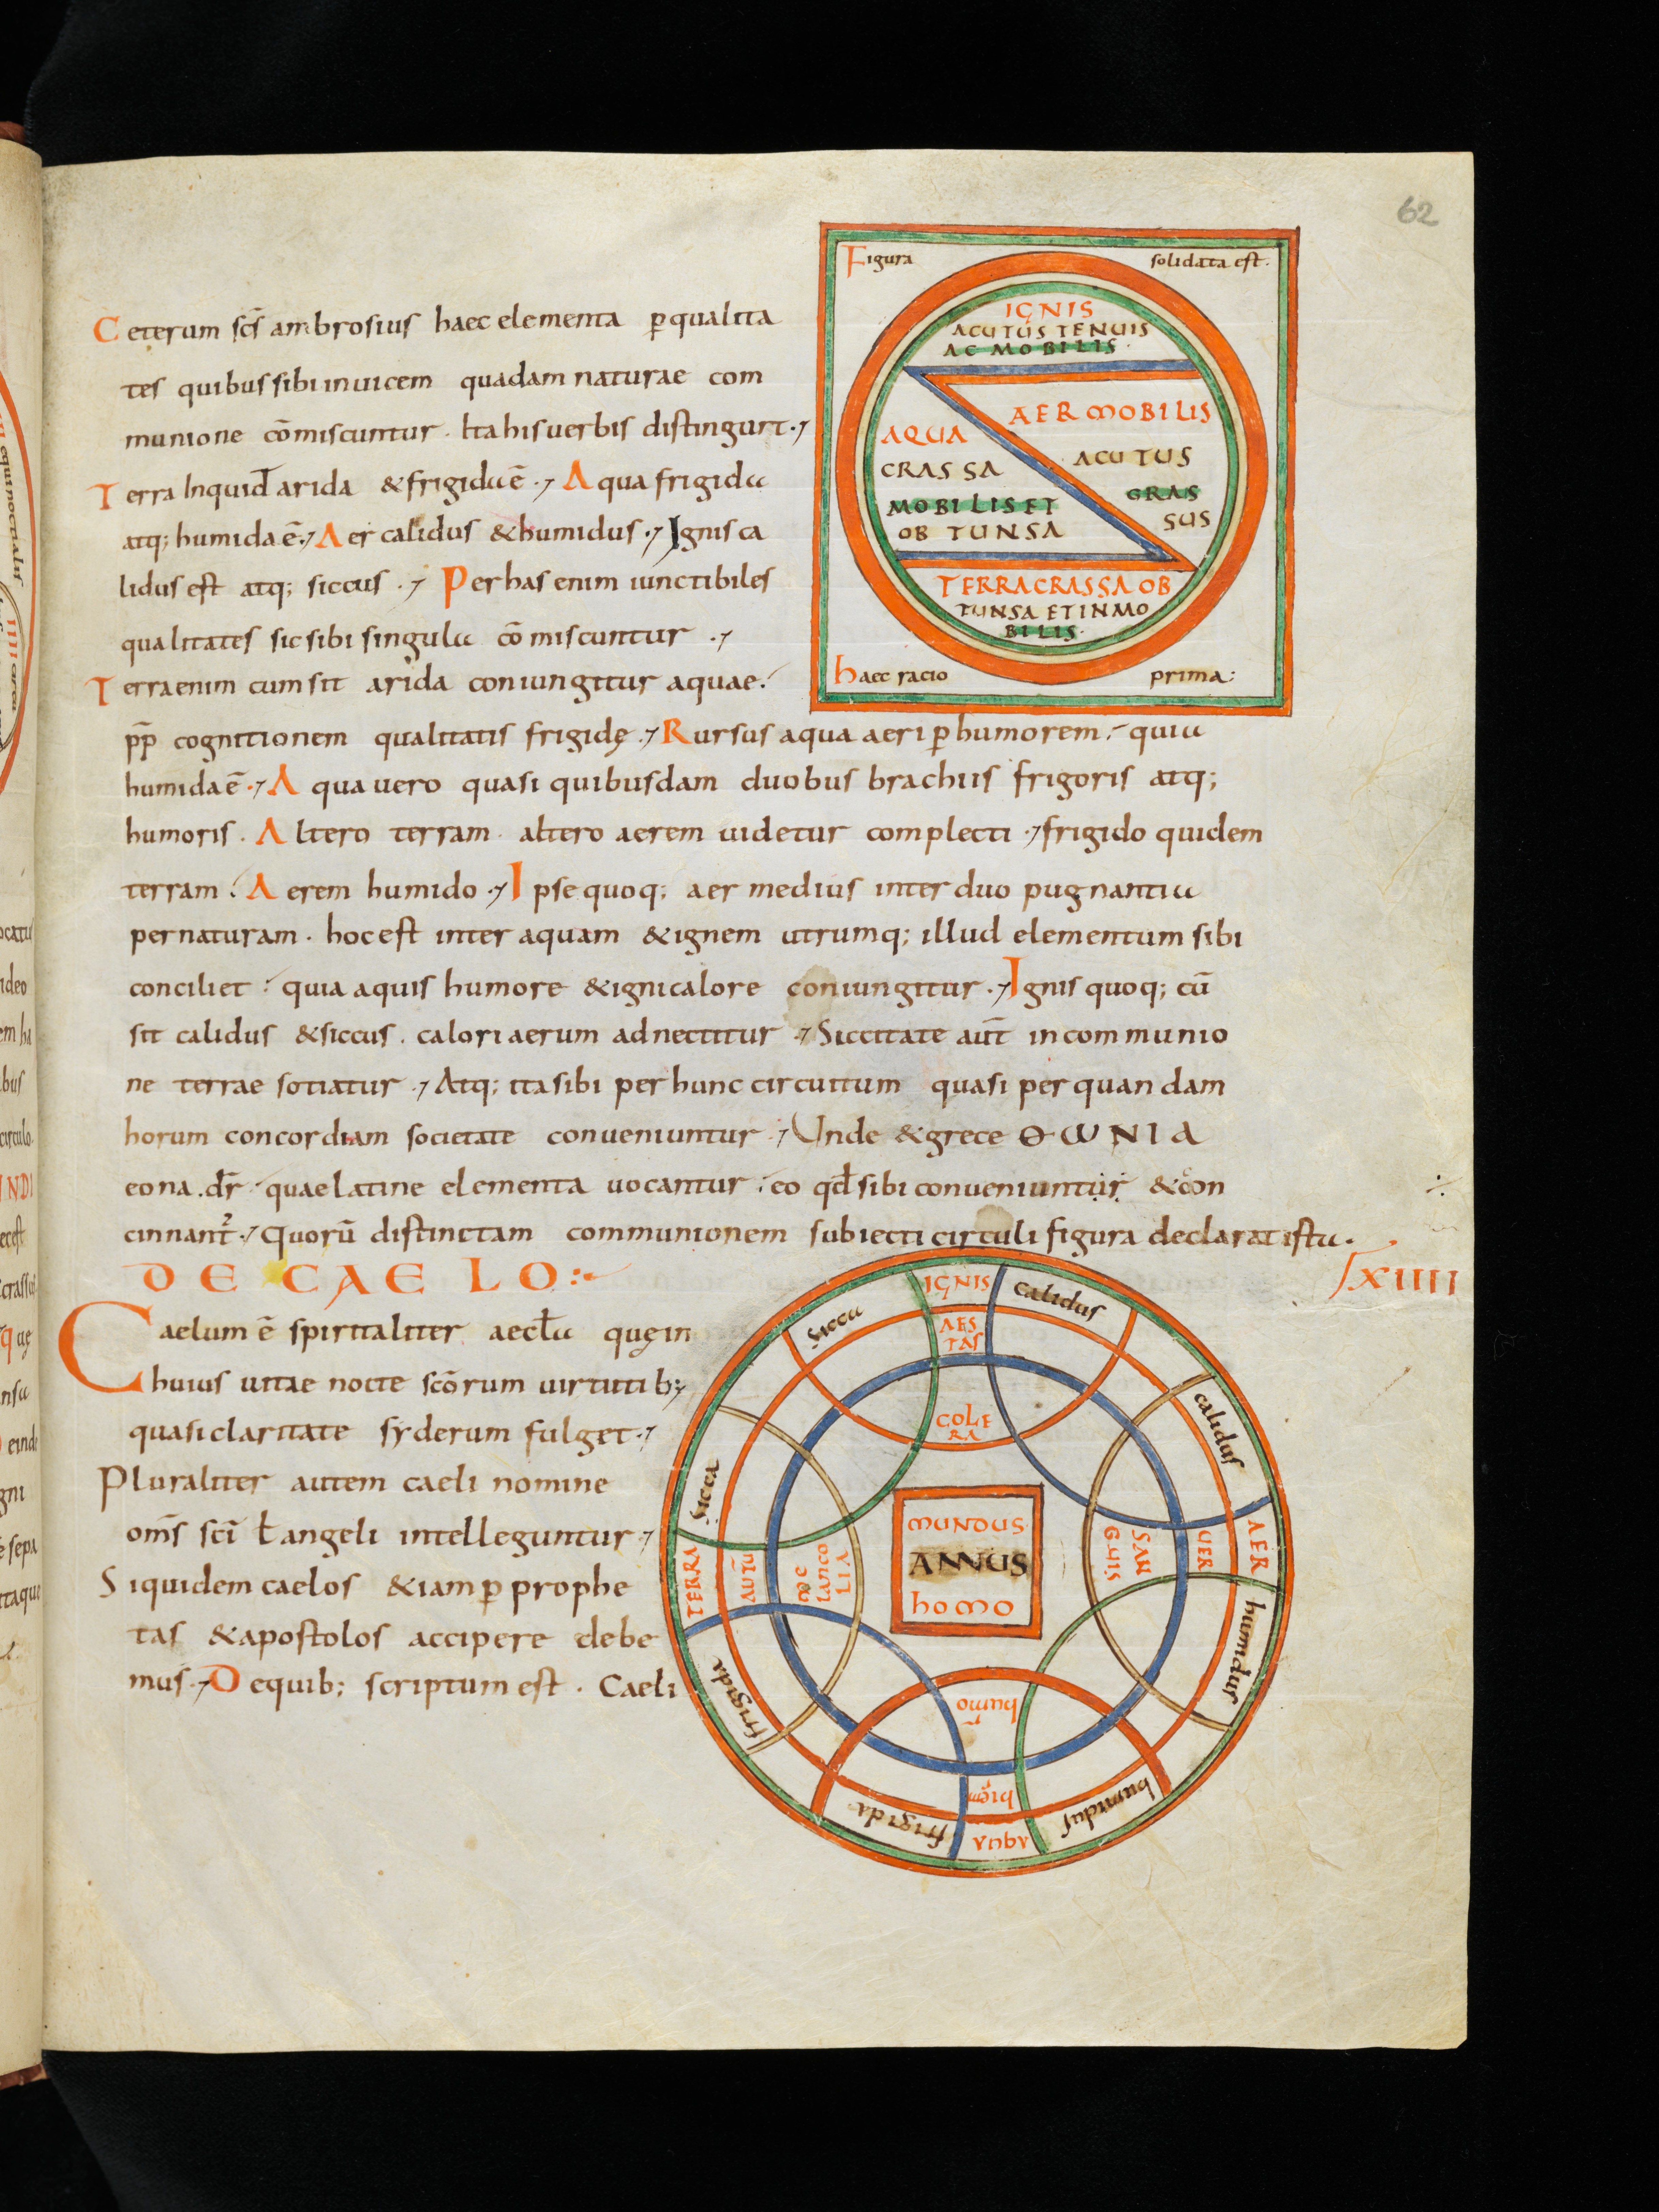 62
Figura solidata est.
IGNIS
ACUTUS TENUIS
AC MOBILIS.
AER MOBILIS
ACUTUS
GRAS
SUS
AQUA
CRASSA
MOBILIS ET
OBTUNSA
TERRA CRASSA OB
TUNSA ET INMO
BILIS.
haec racio prima:
Ceterum scs̄ ambrosius haec elementa ꝑ qualita
tes quibus sibi inuicem quadam naturae com
munione cōmiscuntur. Ita his uerbis distingurt.
Terra Inquid arida & frigida ē. Aqua frigida
atq; humida ē. Aer calidus & humidus. Ignis ca
lidus est atq; siccus. Per has enim iunctibiles
qualitates sic sibi singula cōmiscuntur.
Terra enim cum sit arida coniungitur aquae.
pp̄ cognitionem qualitatis frigidę. Rursus aqua aeri ꝑ humorem. quia
humida ē. Aqua uero quasi quibusdam duobus brachiis frigoris atq;
humoris. Altero terram. altero aerem uidetur complecti. frigido quidem
terram. Aerem humido. Ipse quoq; aer medius inter duo pugnantia
per naturam. hoc est inter aquam & ignem utrumq; illud elementum sibi
conciliet. quia aquis humore & igni calore coniungitur. Ignis quoq; cū
sit calidus & siccus. calori aerum adnectitur. Siccitate aut̄ in communio
ne terrae sotiatur. Atq; ita sibi per hunc circuitum quasi per quandam
horum concordiam societate conueniuntur. Unde & grece ΘωNIA
eona. dr̄. quae latine elementa uocantur. eo qđ sibi conueniuntur & con
cinnant̄. Quorū distinctam communionem subiecti circuli figura declarat ista.
DE CAELO: LXIIII
Caelum ē spiritaliter aecła quę in
huius uitae nocte scōrum uirtutib;
quasi claritate syderum fulget.
Pluraliter autem caeli nomine
oms̄ sci ł angeli intelleguntur.
Siquidem caelos & iam ꝑ prophe
tas & apostolos accipere debe
mus. De quib; scriptum est. Caeli
IGNIS
calidus
calidus
AER
humidus
humidus
AQUA
frigida
frigida
TERRA
sicca
sicca
AES
TAS
COLE
RA
UER
SAN
GUIS
hiem̄
humor̄
AUTŪ
mec
lanco
LIA
MUNDUS
ANNUS
homo